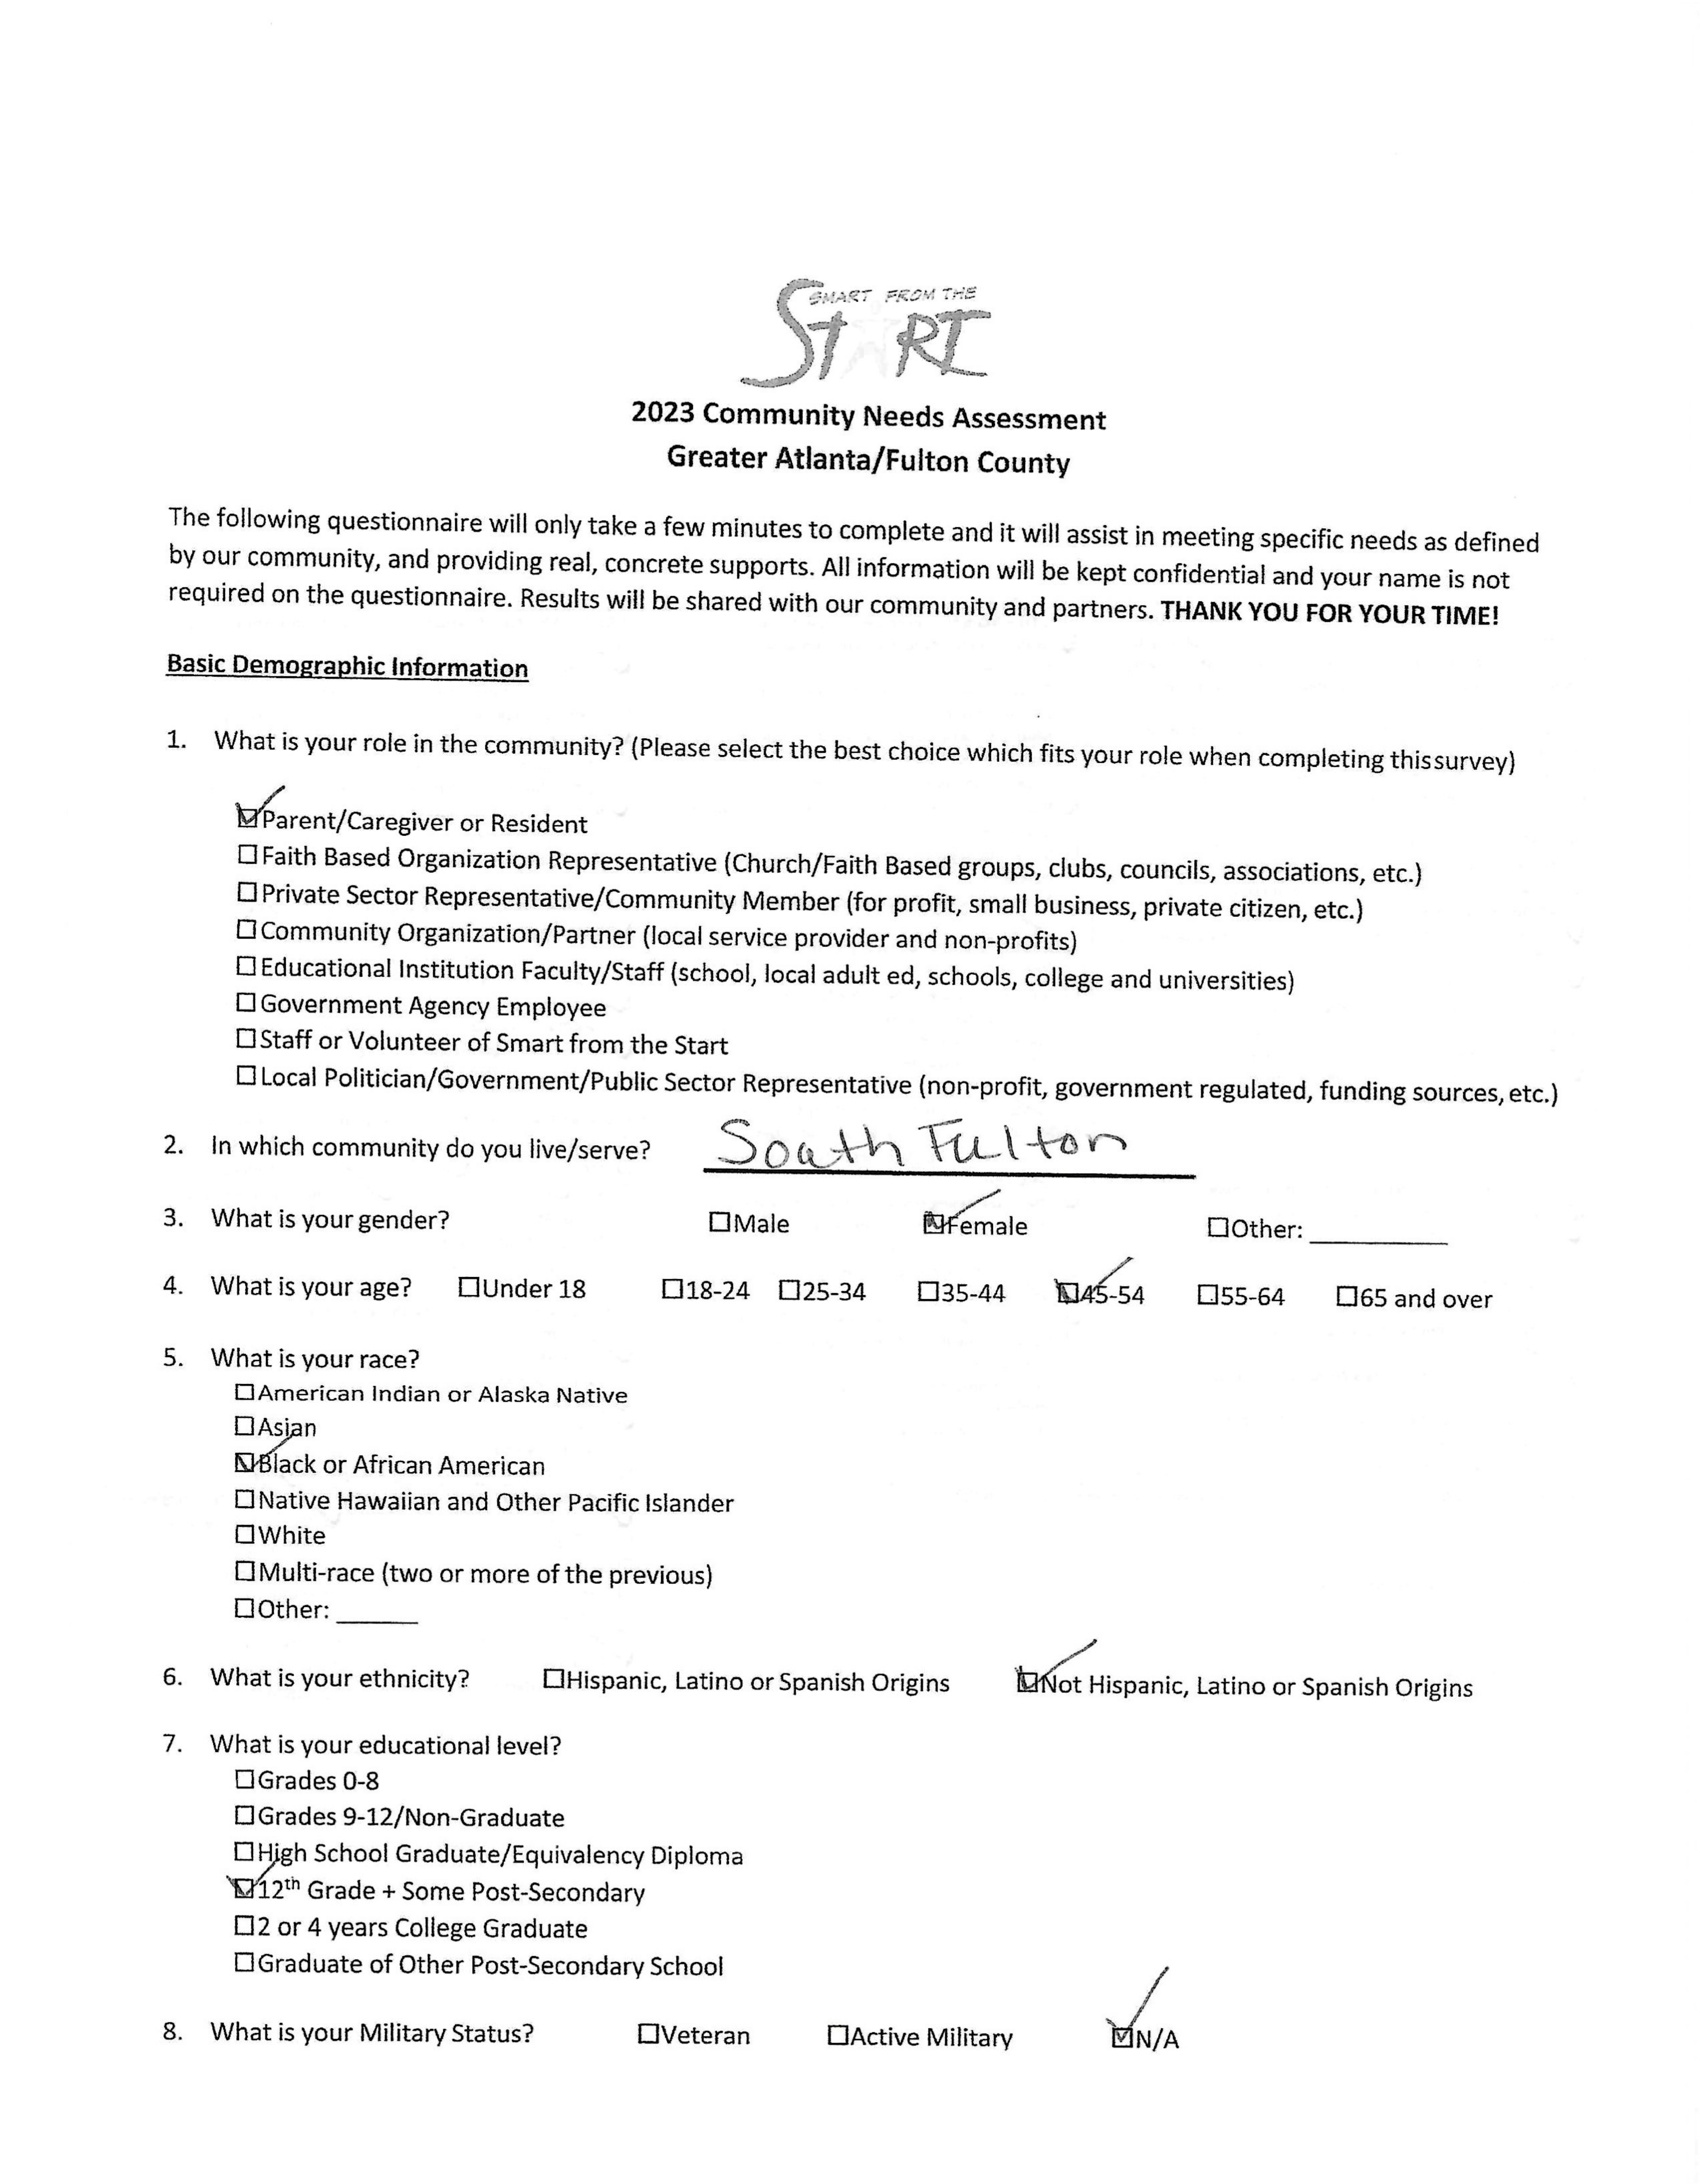 SMART FROM THE
START
2023 Community Needs Assessment
Greater Atlanta/Fulton County
The following questionnaire will only take a few minutes to complete and it will assist in meeting specific needs as defined
by our community, and providing real, concrete supports. All information will be kept confidential and your name is not
required on the questionnaire. Results will be shared with our community and partners. THANK YOU FOR YOUR TIME!
Basic Demographic Information
1. What is your role in the community? (Please select the best choice which fits your role when completing this survey)
☑Parent/Caregiver or Resident
☐Faith Based Organization Representative (Church/Faith Based groups, clubs, councils, associations, etc.)
☐Private Sector Representative/Community Member (for profit, small business, private citizen, etc.)
☐Community Organization/Partner (local service provider and non-profits)
☐Educational Institution Faculty/Staff (school, local adult ed, schools, college and universities)
☐Government Agency Employee
☐Staff or Volunteer of Smart from the Start
☐Local Politician/Government/Public Sector Representative (non-profit, government regulated, funding sources, etc.)
2. In which community do you live/serve? South Fulton
3. What is your gender? ☐Male ☑Female ☐Other: ________
4. What is your age? ☐Under 18 ☐18-24 ☐25-34 ☐35-44 ☑45-54 ☐55-64 ☐65 and over
5. What is your race?
☐American Indian or Alaska Native
☐Asian
☑Black or African American
☐Native Hawaiian and Other Pacific Islander
☐White
☐Multi-race (two or more of the previous)
☐Other: ______
6. What is your ethnicity? ☐Hispanic, Latino or Spanish Origins ☑Not Hispanic, Latino or Spanish Origins
7. What is your educational level?
☐Grades 0-8
☐Grades 9-12/Non-Graduate
☐High School Graduate/Equivalency Diploma
☑12th Grade + Some Post-Secondary
☐2 or 4 years College Graduate
☐Graduate of Other Post-Secondary School
8. What is your Military Status? ☐Veteran ☐Active Military ☑N/A